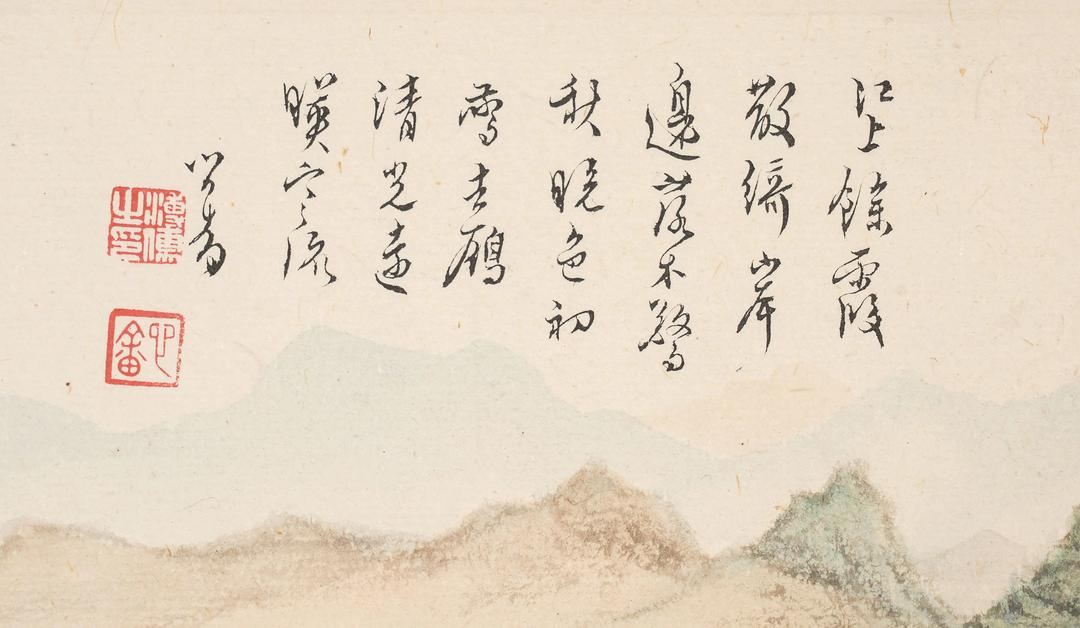 江上餘霞
散綺岸
邊落木驚
秋晚色初
去鴈
清光遠
暎寒流
心畬
溥儒之印